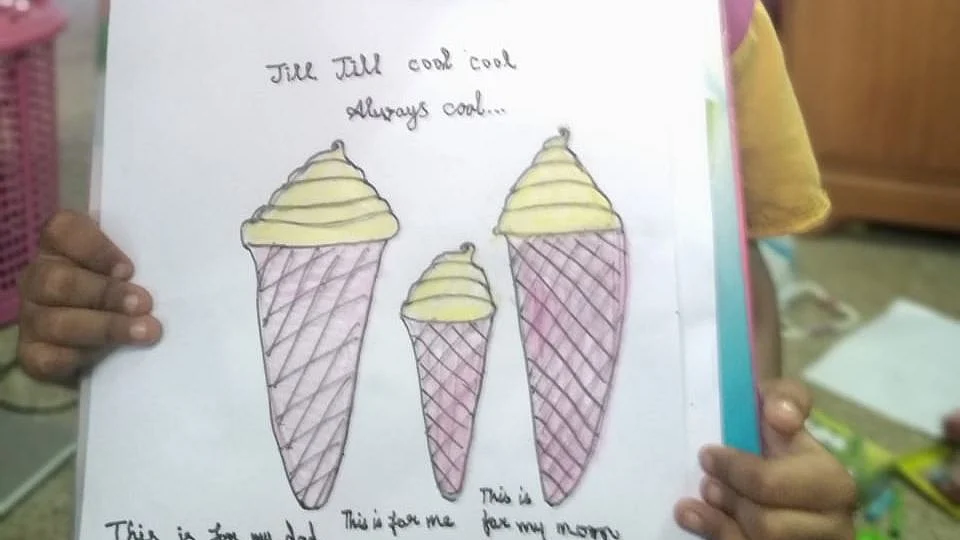 Jill Jill cool cool
Always cool...
This is for my dad
This is for me
This is
for my mom